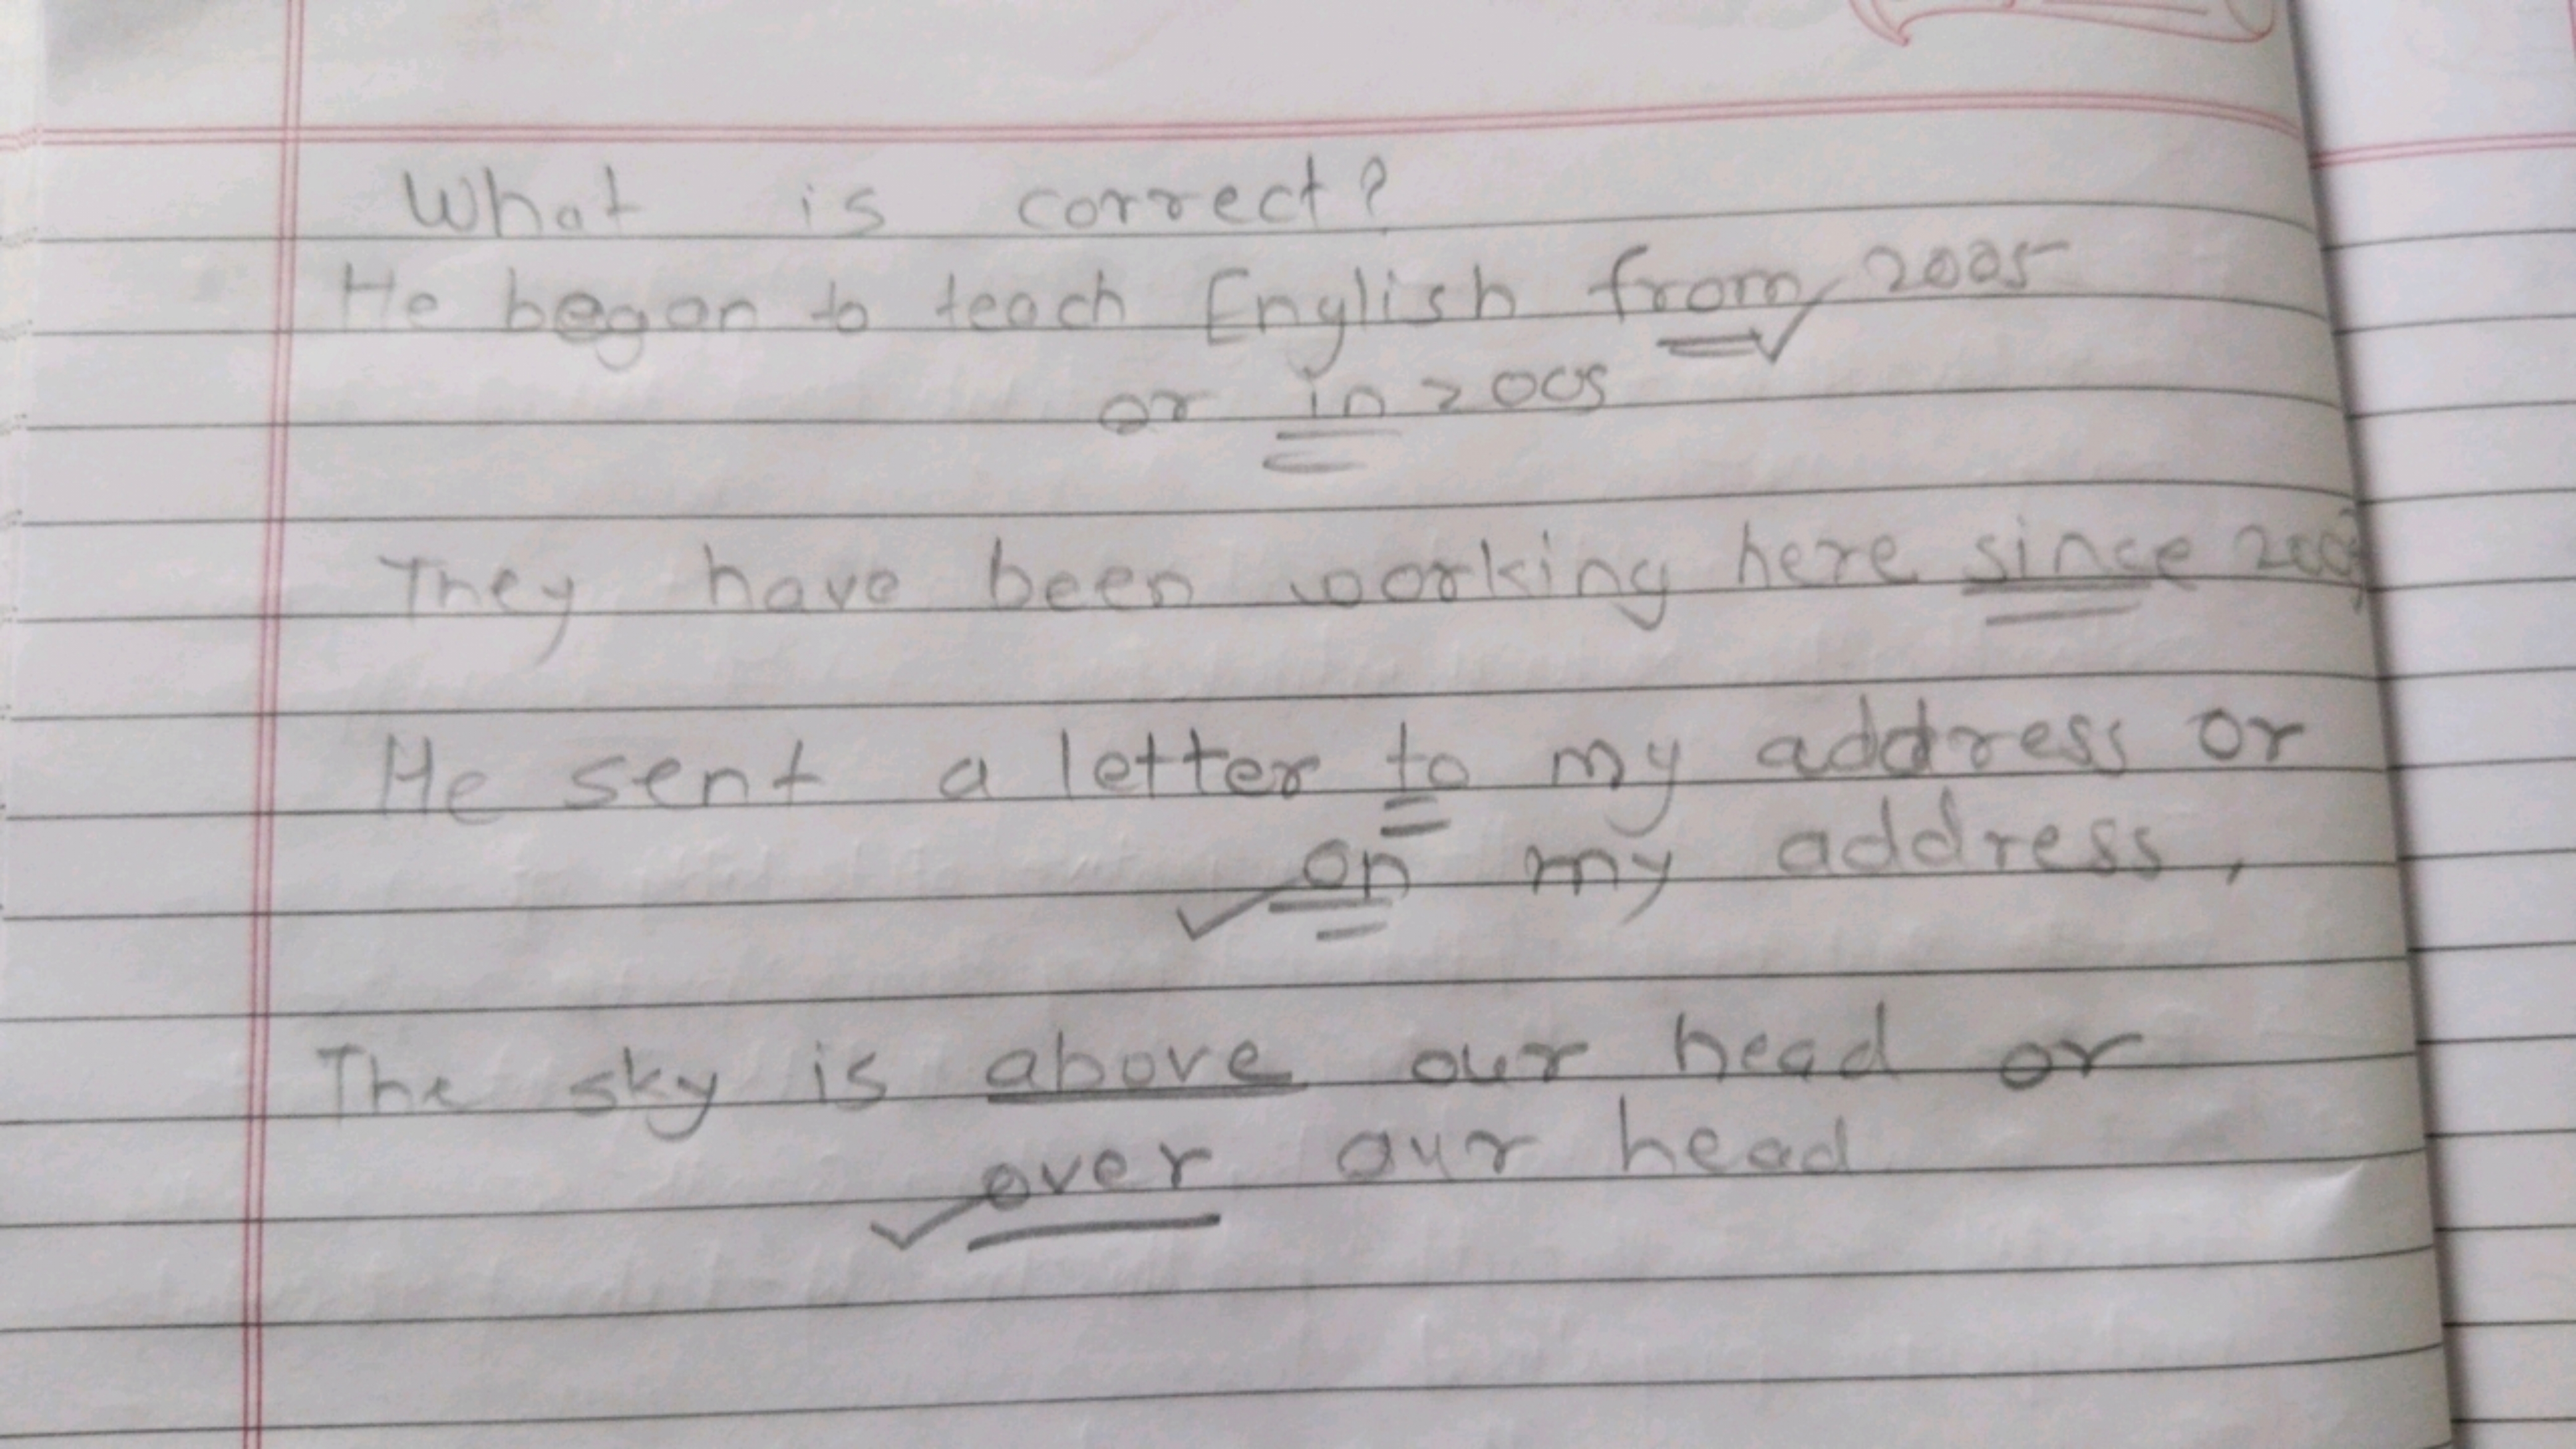 What is correct?
He began to teach English from 2005
or in 2005
They have been working here since
He sent a letter to my address or
on my address,
The sky is above our head or
over our head